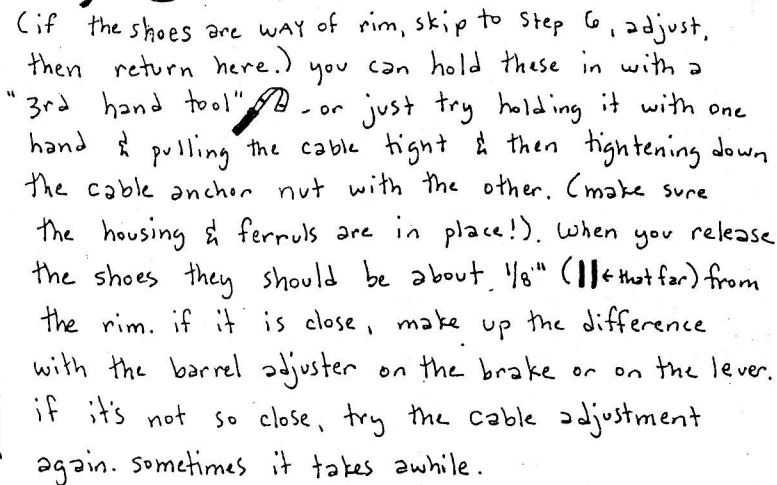 (if the shoes are WAY of rim, skip to step 6, adjust,
then return here.) you can hold these in with a
"3rd hand tool" - or just try holding it with one
hand & pulling the cable tight & then tightening down
the cable anchor nut with the other. (make sure
the housing & ferruls are in place!). When you release
the shoes they should be about 1/8" (||← that far) from
the rim. if it is close, make up the difference
with the barrel adjuster on the brake or on the lever.
if it's not so close, try the cable adjustment
again. sometimes it takes awhile.